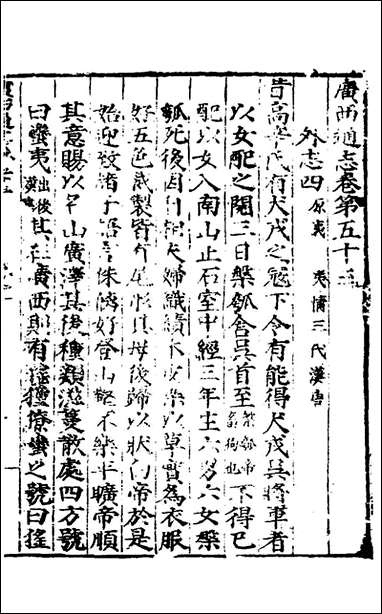 廣西通志卷第五十三
外志四 原夷 夷情三代漢唐
昔高辛氏有犬戎之寇下令有能得犬戎吳將軍者
以女配之閱三日槃瓠含吳首至 槃瓠帝畜狗也 不得已
配以女入南山止石室中經三年生六男六女槃
瓠死後因自相夫婦織績木皮染以草實為衣服
好五色裁製皆有尾形其母後歸以狀白帝於是
始迎致諸子語言侏離好登山壑不樂平曠帝順
其意賜以名山廣澤其後種類滋蔓散處四方號
曰蠻夷 出後漢書 其在廣西則有猺獞獠蠻之號曰猺